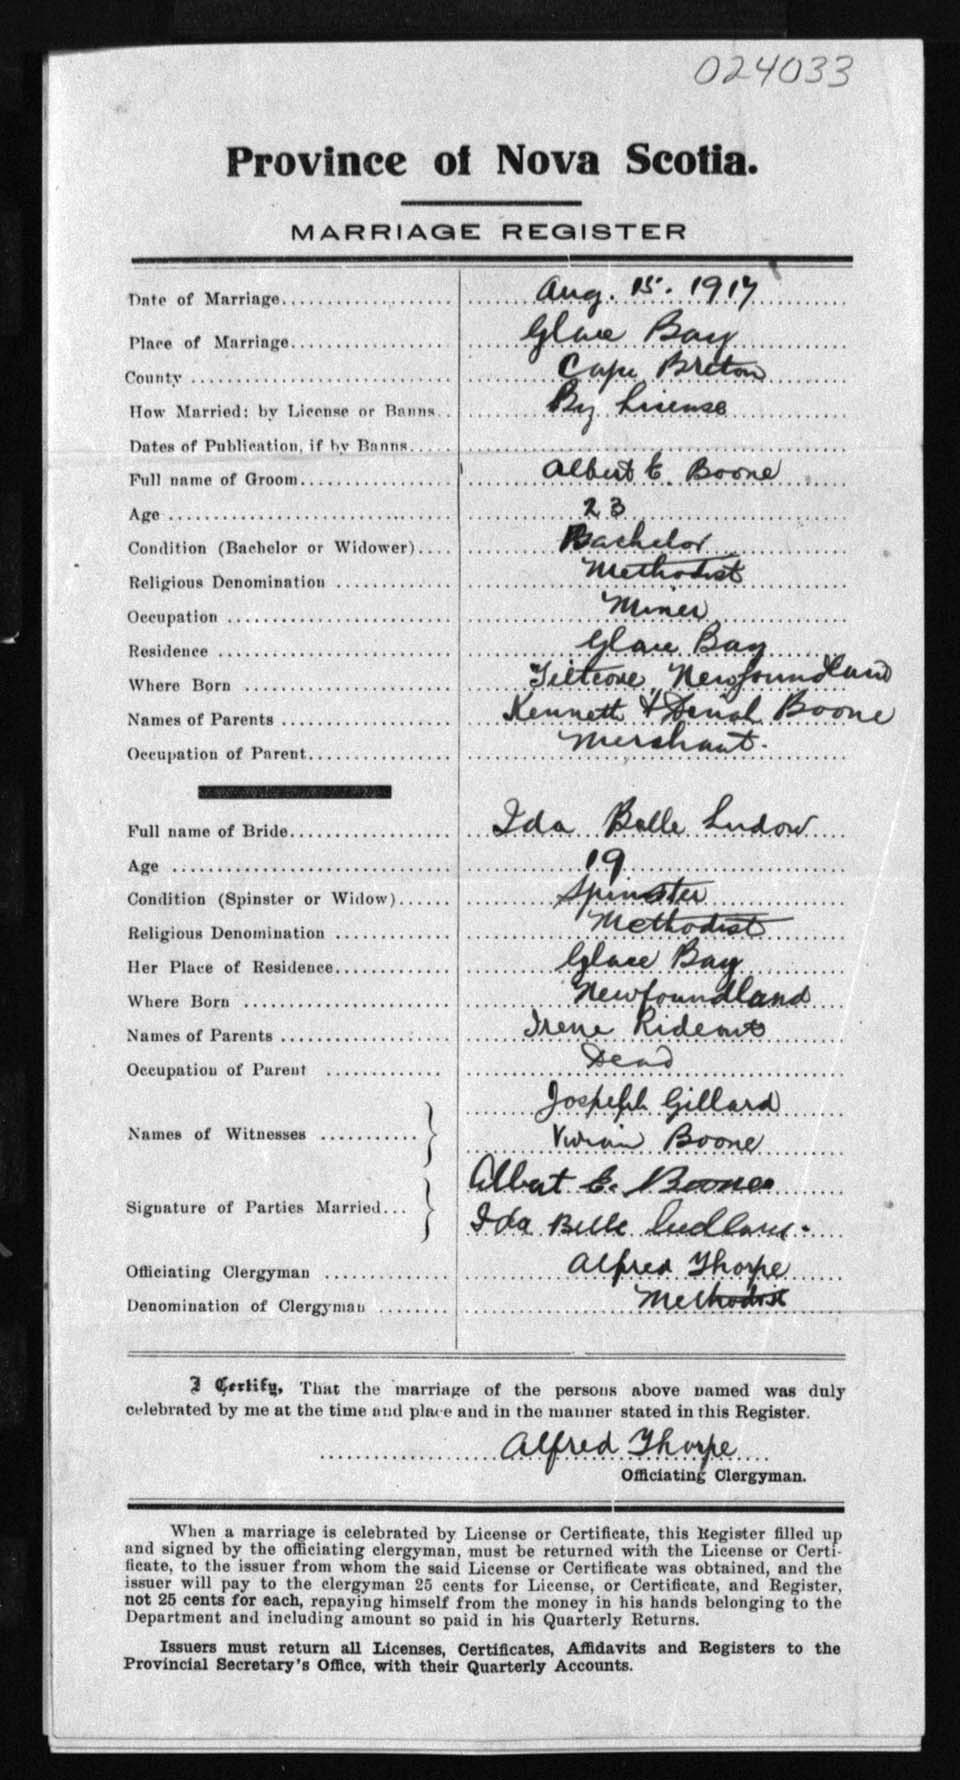 024033
Province of Nova Scotia.
MARRIAGE REGISTER
Date of Marriage.................... Aug. 15. 1917
Place of Marriage................... Glace Bay
County ............................ Cape Breton
How Married: by License or Banns.. By License
Dates of Publication, if by Banns.....
Full name of Groom.................. Albert E. Boone
Age ............................... 23
Condition (Bachelor or Widower).... Bachelor
Religious Denomination ............. Methodist
Occupation ........................ Miner
Residence ......................... Glace Bay
Where Born ........................ Tiltcove, Newfoundland
Names of Parents ................... Kenneth & Dinah Boone
Occupation of Parent................ Merchant.
Full name of Bride.................. Ida Belle Ludow
Age ............................... 19
Condition (Spinster or Widow)...... Spinster
Religious Denomination ............. Methodist
Her Place of Residence............. Glace Bay
Where Born ........................ Newfoundland
Names of Parents ................... Irene Rideout
Occupation of Parent ............. Dead
Names of Witnesses ........... } Jospeph Gillard
Vivian Boone
Signature of Parties Married... } Albert E. Boone
Ida Belle Ludlow.
Officiating Clergyman .............. Alfred Thorpe
Denomination of Clergyman ........ Methodist
I Certify, That the marriage of the persons above named was duly
celebrated by me at the time and place and in the manner stated in this Register.
Alfred Thorpe
Officiating Clergyman.
When a marriage is celebrated by License or Certificate, this Register filled up
and signed by the officiating clergyman, must be returned with the License or Certi-
ficate, to the issuer from whom the said License or Certificate was obtained, and the
issuer will pay to the clergyman 25 cents for License, or Certificate, and Register,
not 25 cents for each, repaying himself from the money in his hands belonging to the
Department and including amount so paid in his Quarterly Returns.
Issuers must return all Licenses, Certificates, Affidavits and Registers to the
Provincial Secretary's Office, with their Quarterly Accounts.